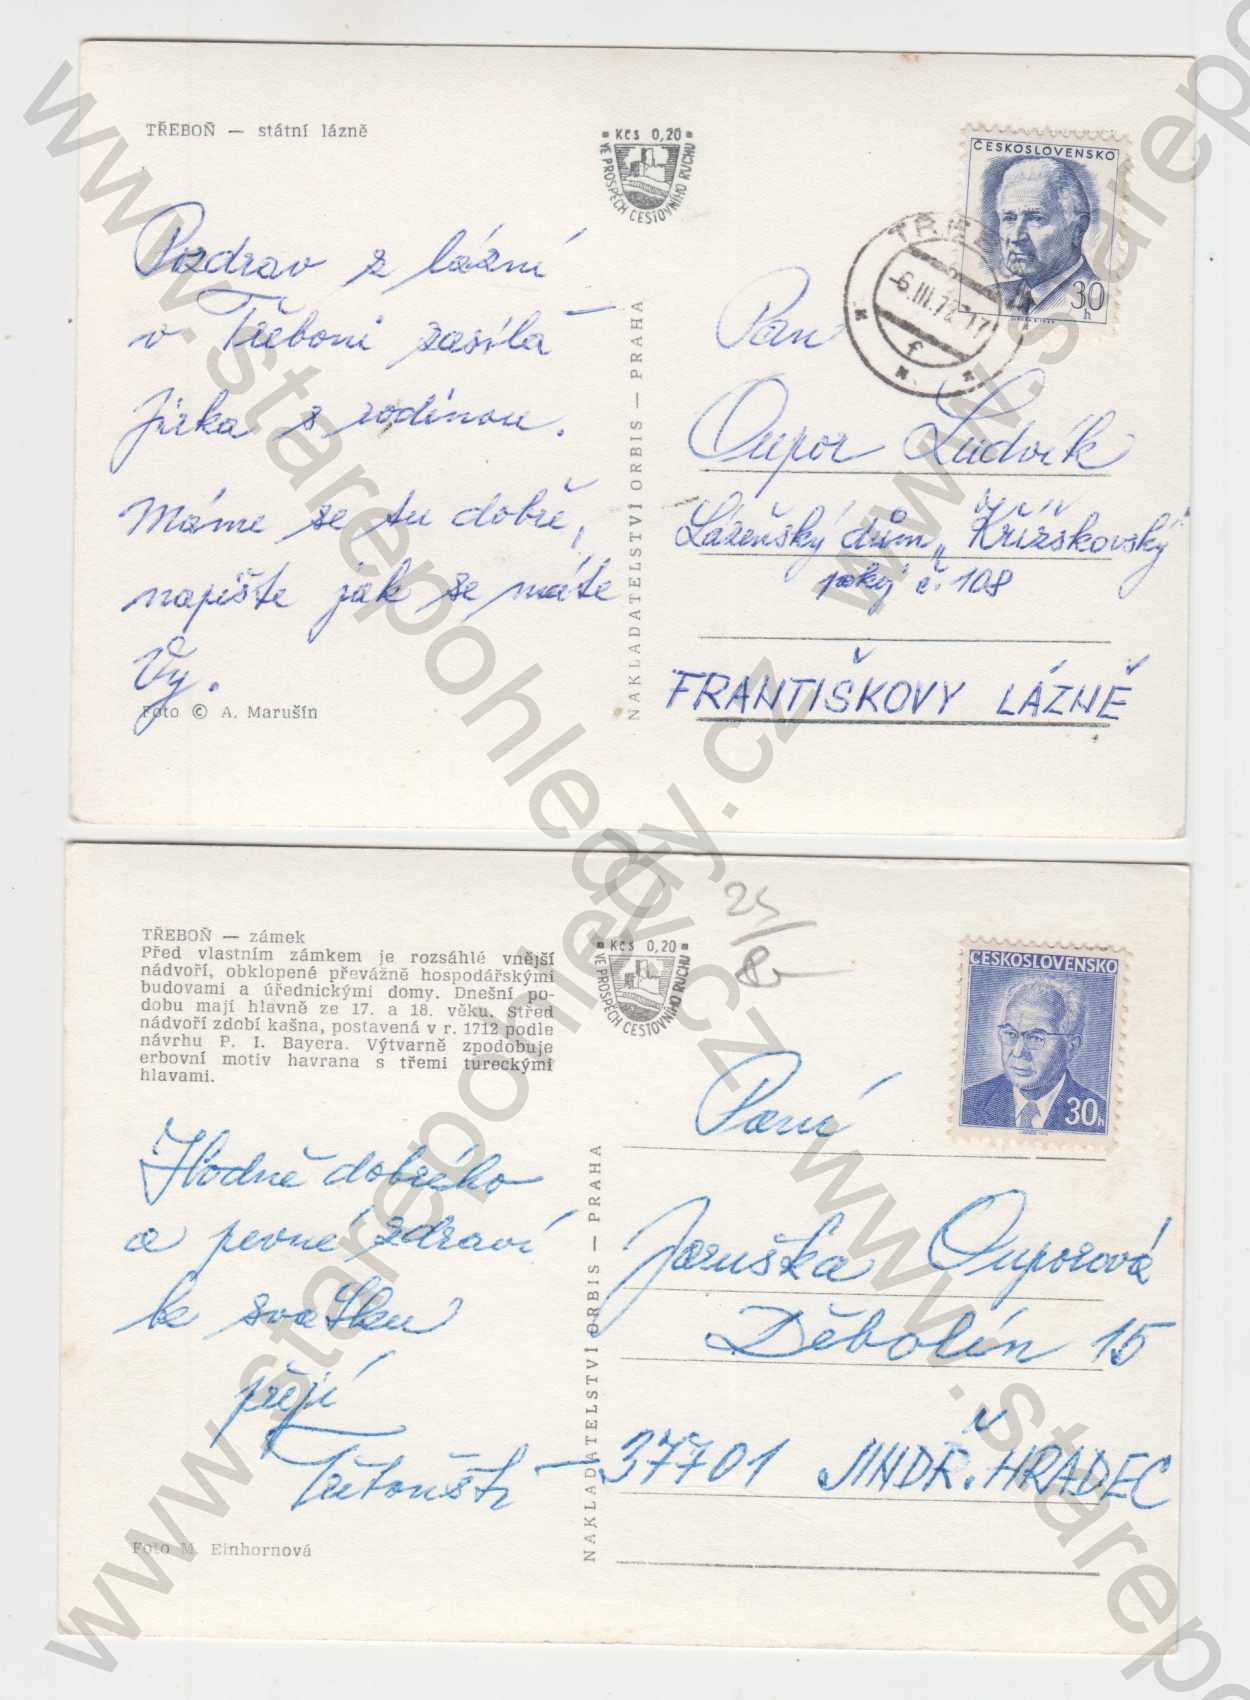 TŘEBOŇ — státní lázně
Kčs 0,20
VE PROSPĚCH CESTOVNÍHO RUCHU
ČESKOSLOVENSKO
30 h
6.III.72-17
Pozdrav z lázní
v Třeboni zasílá
Jirka s rodinou.
Máme se tu dobře,
napište jak se máte
Vy.
Foto © A. Marušín
NAKLADATELSTVÍ ORBIS — PRAHA
Pan
Oupor Ludvík
Lázeňský dům „Křížkovský"
pokoj č. 108
FRANTIŠKOVY LÁZNĚ
TŘEBOŇ — zámek
Před vlastním zámkem je rozsáhlé vnější
nádvoří, obklopené převážně hospodářskými
budovami a úřednickými domy. Dnešní po-
dobu mají hlavně ze 17. a 18. věku. Střed
nádvoří zdobí kašna, postavená v r. 1712 podle
návrhu P. I. Bayera. Výtvarně zpodobuje
erbovní motiv havrana s třemi tureckými
hlavami.
Kčs 0,20
VE PROSPĚCH CESTOVNÍHO RUCHU
ČESKOSLOVENSKO
30 h
Hodně dobrého
a pevné zdraví
k svátku
přejí
Foto M. Einhornová
NAKLADATELSTVÍ ORBIS — PRAHA
Paní
Jaruška Ouporová
Děbolín 15
37701 JINDŘ. HRADEC
www.starepohledy.cz
www.starepohledy.cz